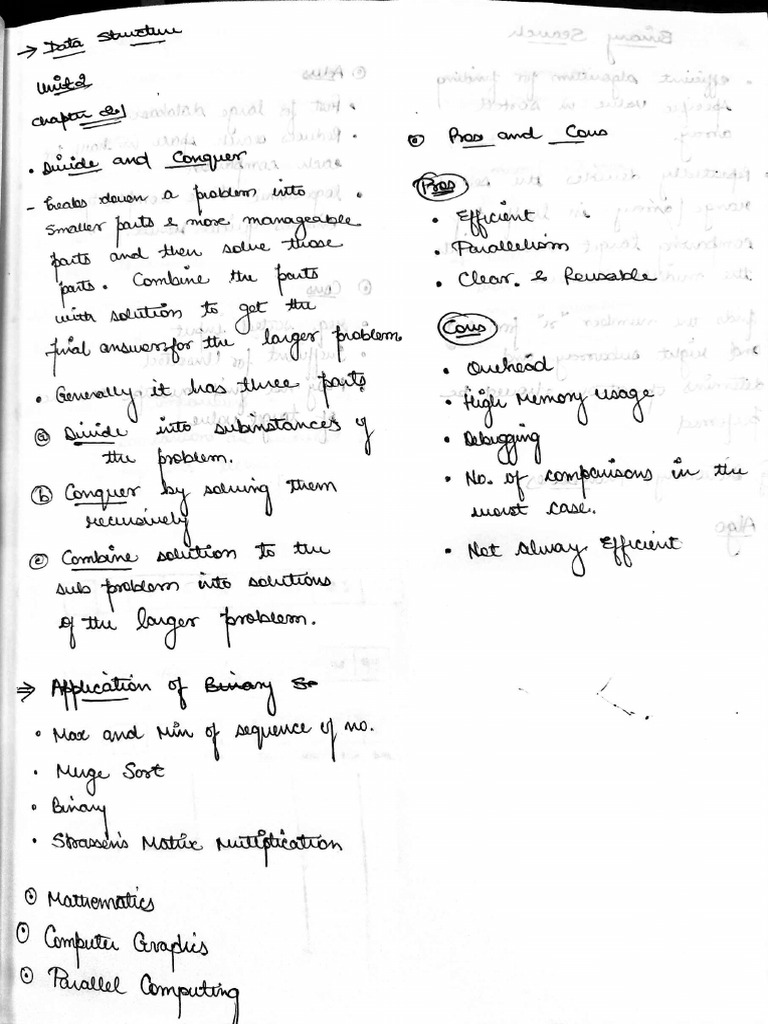 → Data Structure
Unit 2
Chapter 2.1
• Divide and Conquer
- breaks down a problem into
smaller parts & more manageable
parts and then solve those
parts. Combine the parts
with solution to get the
final answers for the larger problem
• Generally it has three parts
ⓐ Divide into subinstances of
the problem.
ⓑ Conquer by solving them
recursively
ⓒ Combine solution to the
sub problem into solutions
of the larger problem.
⇒ Application of Binary Se
• Max and Min of sequence of no.
• Merge Sort
• Binary
• Strassen's Matrix Multiplication
⊙ Mathematics
⊙ Computer Graphics
⊙ Parallel Computing
⊙ Pros and Cons
Pros
• Efficient
• Parallelism
• Clear & Reusable
Cons
• Overhead
• High Memory usage
• Debugging
• No. of comparisons in the
worst case.
• Not Always Efficient